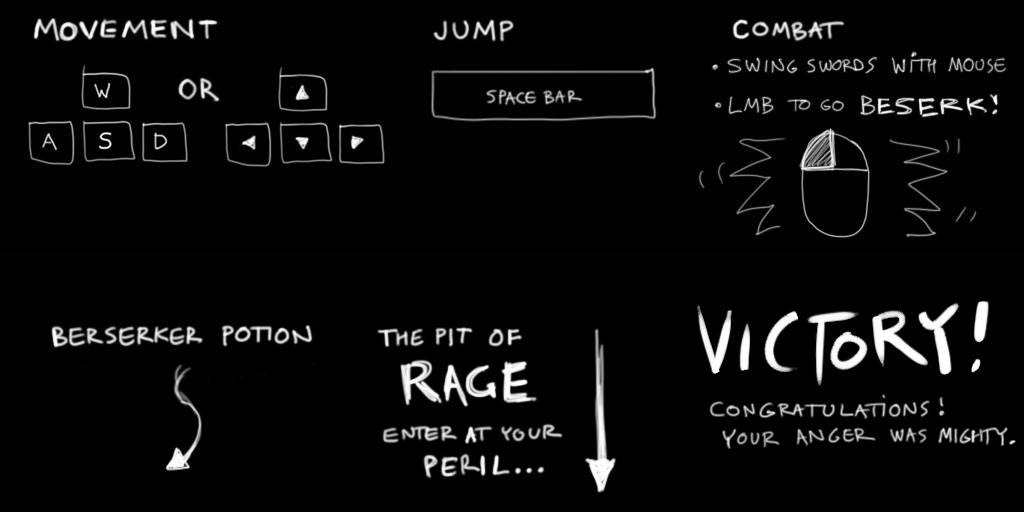 MOVEMENT
W
OR
A S D
JUMP
SPACE BAR
COMBAT
• SWING SWORDS WITH MOUSE
• LMB TO GO BESERK!
BERSERKER POTION
THE PIT OF
RAGE
ENTER AT YOUR
PERIL...
VICTORY!
CONGRATULATIONS!
YOUR ANGER WAS MIGHTY.